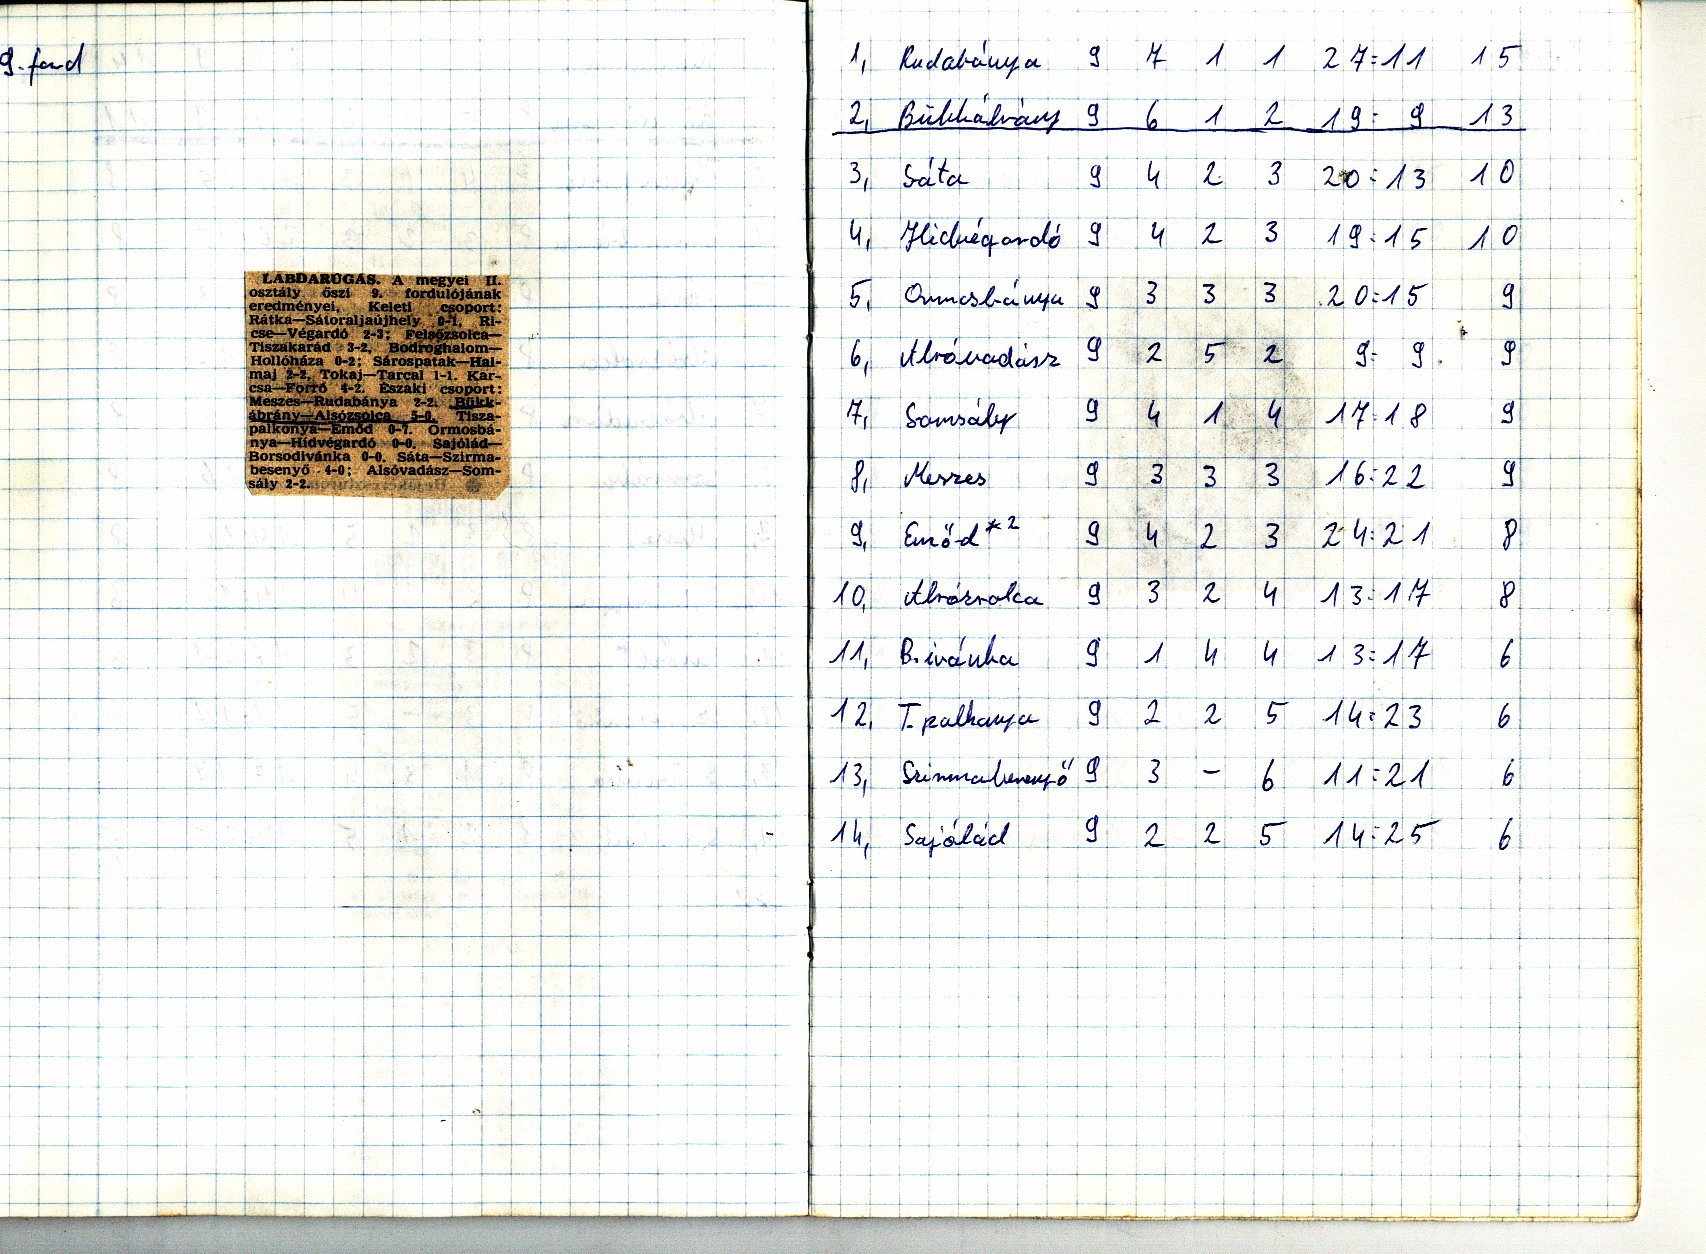 9. ford
LABDARÚGÁS. A megyei II.
osztály őszi 9. fordulójának
eredményei, Keleti csoport:
Rátka—Sátoraljaújhely 0-1, Ri-
cse—Végardó 2-3; Felsőzsolca—
Tiszakarád 3-2, Bodroghalom—
Hollóháza 0-2; Sárospatak—Hal-
maj 2-2, Tokaj—Tarcal 1-1. Kar-
csa—Forró 4-2. Északi csoport:
Meszes—Rudabánya 2-2. Bükk-
ábrány—Alsózsolca 5-0. Tisza-
palkonya—Emőd 0-7. Ormosbá-
nya—Hídvégardó 0-0, Sajólád—
Borsodivánka 0-0. Sáta—Szirma-
besenyő 4-0; Alsóvadász—Som-
sály 2-2.
1, Rudabánya 9 7 1 1 27:11 15
2, Bükkábrány 9 6 1 2 19: 9 13
3, Sáta 9 4 2 3 20:13 10
4, Hidvégardó 9 4 2 3 19:15 10
5, Ormosbánya 9 3 3 3 20:15 9
6, Alsóvadász 9 2 5 2 9: 9 9
7, Somsály 9 4 1 4 17:18 9
8, Meszes 9 3 3 3 16:22 9
9, Emőd*2 9 4 2 3 24:21 8
10, Alsózsolca 9 3 2 4 13:17 8
11, B.ivánka 9 1 4 4 13:17 6
12, T.palkonya 9 2 2 5 14:23 6
13, Szirmabesenyő 9 3 – 6 11:21 6
14, Sajólád 9 2 2 5 14:25 6